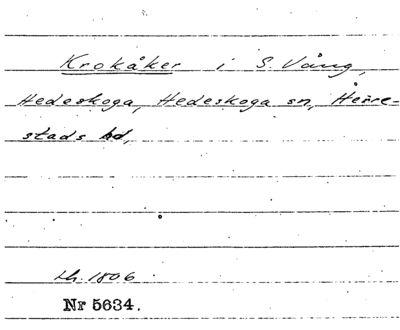 Krokåker i S. Vång,
Hedeskoga, Hedeskoga sn, Herre-
stads hd,
Lh. 1806
Nr 5634.